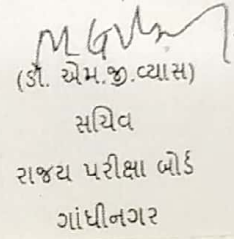 (ડૉ. એમ.જી.વ્યાસ)
સચિવ
રાજય પરીક્ષા બોર્ડ
ગાંધીનગર